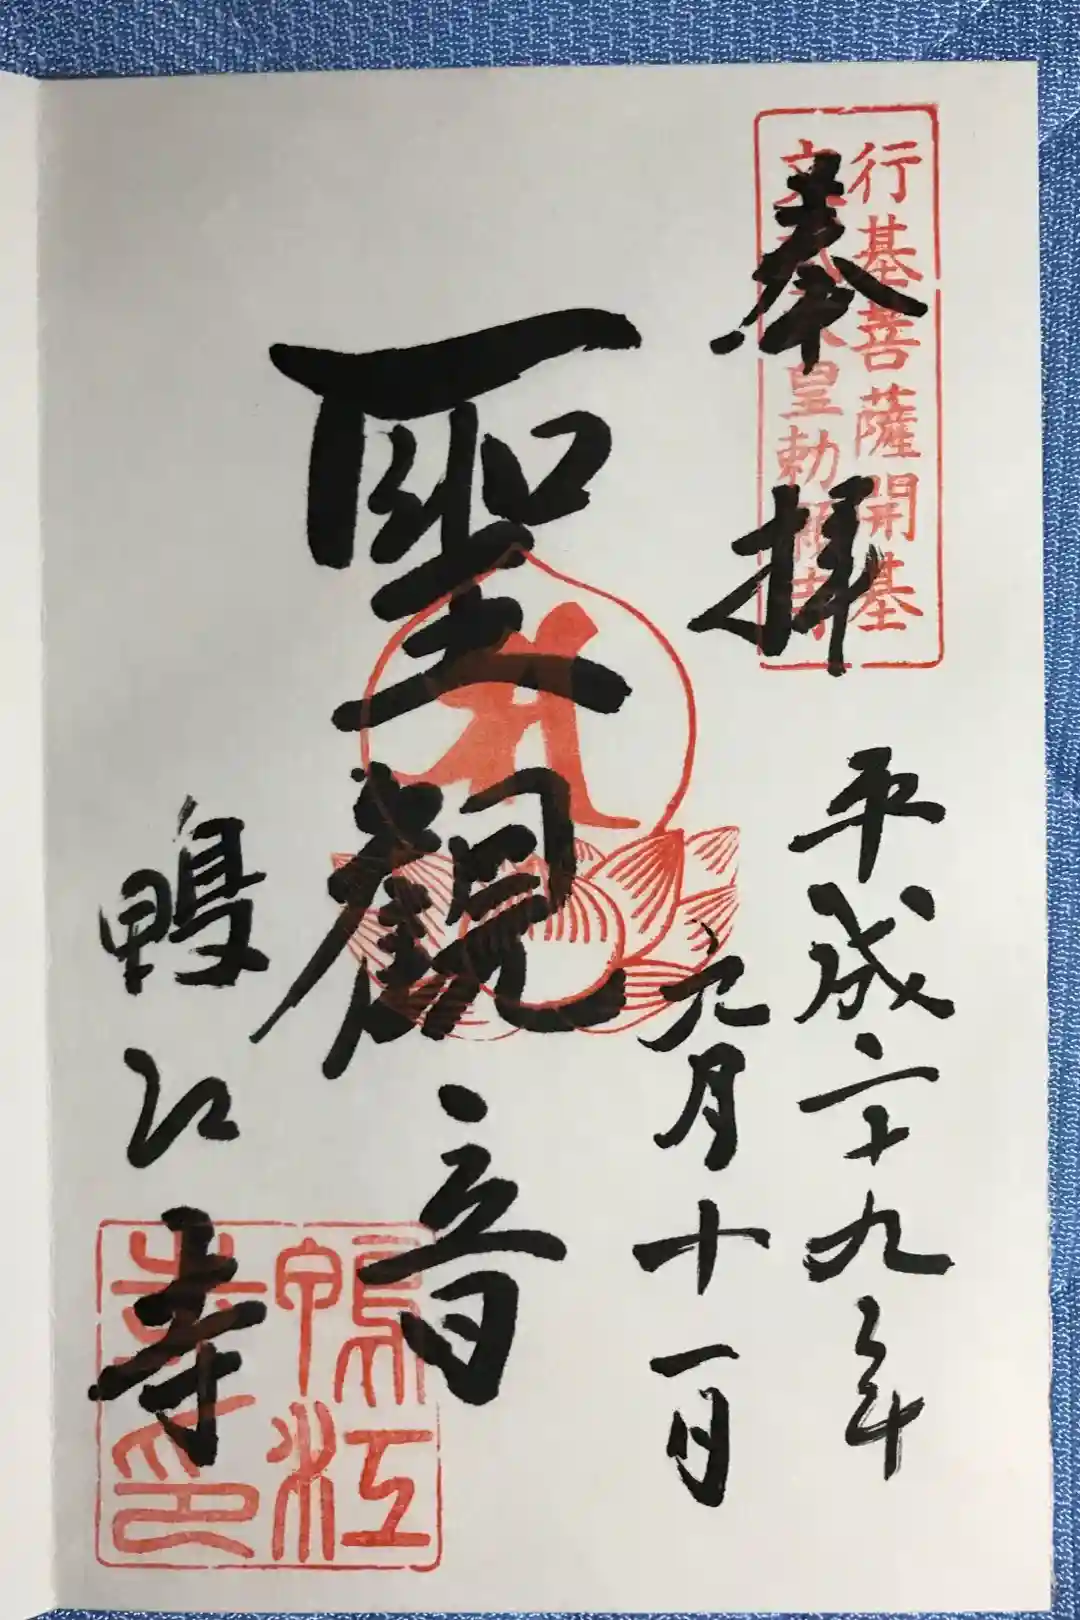 行基菩薩開基
皇勅願
奉拝
平成二十九年
九月十一日
聖觀音
鴨江寺
鴨江
寺印